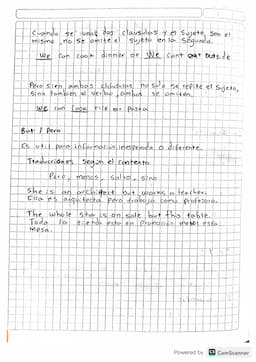 Cuando se unen dos clausulas y el Sujeto, son el
mismo, no se omite el sujeto en la Segunda.
We Can cook dinner or We Can't eat outside
Pero si en ambas clausulas no solo se repite el Sujeto,
sino tambien el verbo, ambos se omiten.
We can Cook rice or Pasta
But / Pero
Es util para información inesperada o diferente.
Traducciones según el contexto
Pero, menos, salvo, sino
She is an architect but works a teacher.
Ella es arquitecta pero trabaja como profesora.
The whole store is on sale but this table.
Toda la tienda esta en promoción menos esta
mesa.
Powered by CS CamScanner